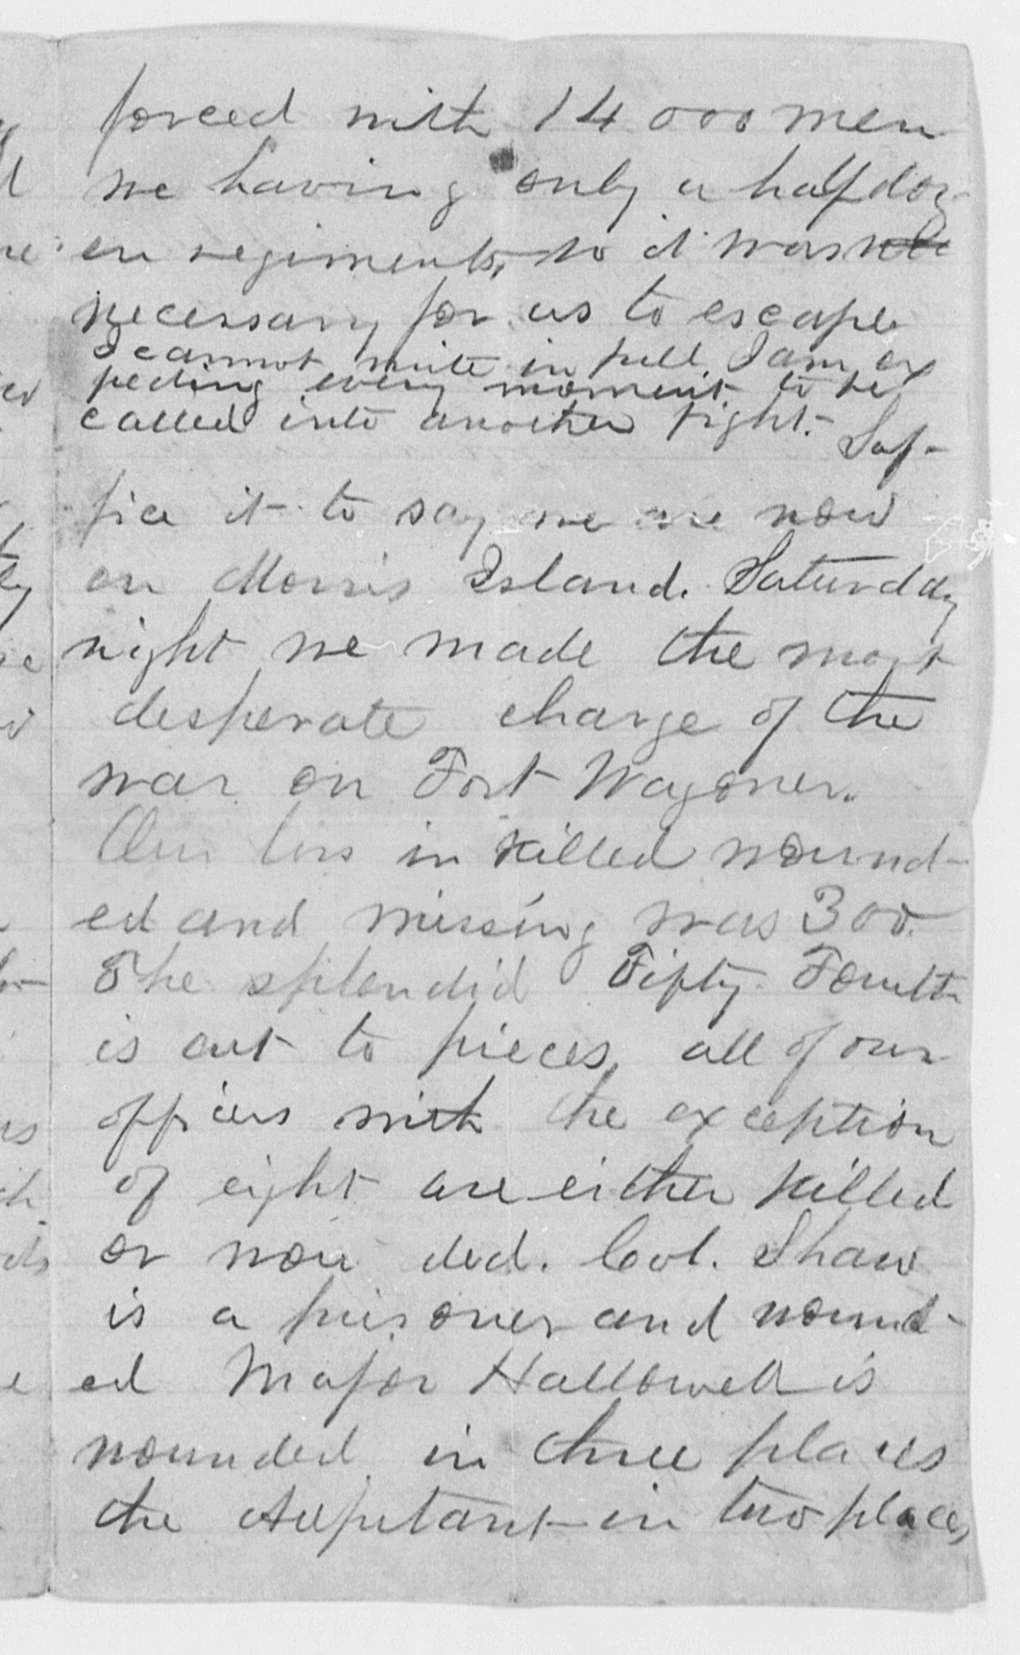 forced with 14 000 men
we having only a half doz-
en regiments, so it was
necessary for us to escape
I cannot write in full I am ex
pecting every moment to be
called into another fight. Suf-
fice it to say we are now
on Morris Island. Saturday
night we made the most
desperate charge of the
war on Fort Wagoner.
Our loss in killed wound-
ed and missing was 300.
The splendid Fifty Fourth
is cut to pieces, all of our
officers with the exception
of eight are either killed
or wounded. Col. Shaw
is a prisoner and wound-
ed Major Hallowell is
wounded in three places
the Adjutant in two places,